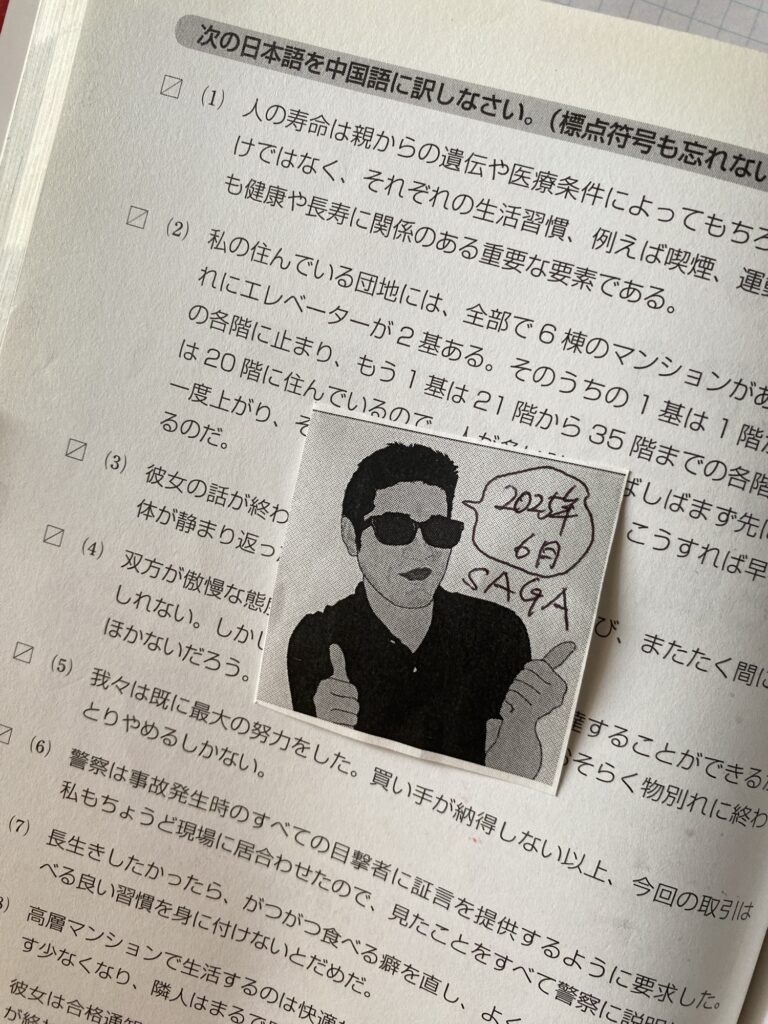 次の日本語を中国語に訳しなさい。(標点符号も忘れない
(1) 人の寿命は親からの遺伝や医療条件によってもちろ
けではなく、それぞれの生活習慣、例えば喫煙、運動
も健康や長寿に関係のある重要な要素である。
(2) 私の住んでいる団地には、全部で6棟のマンションがあ
れにエレベーターが2基ある。そのうちの1基は1階か
の各階に止まり、もう1基は21階から35階までの各階
は20階に住んでいるので、人が多い
ばしばまず先に
一度上がり、そ
こうすれば早
るのだ。
(3) 彼女の話が終わ
び、またたく間に
体が静まり返っ
(4) 双方が傲慢な態度
達することができるか
しれない。しかし
おそらく物別れに終わ
ほかないだろう。
(5) 我々は既に最大の努力をした。買い手が納得しない以上、今回の取引は
とりやめるしかない。
(6) 警察は事故発生時のすべての目撃者に証言を提供するように要求した。
私もちょうど現場に居合わせたので、見たことをすべて警察に説明
(7) 長生きしたかったら、がつがつ食べる癖を直し、よく
べる良い習慣を身に付けないとだめだ。
高層マンションで生活するのは快適
す少なくなり、隣人はまるで
彼女は合格通知
が終わ
2025年
6月
SAGA